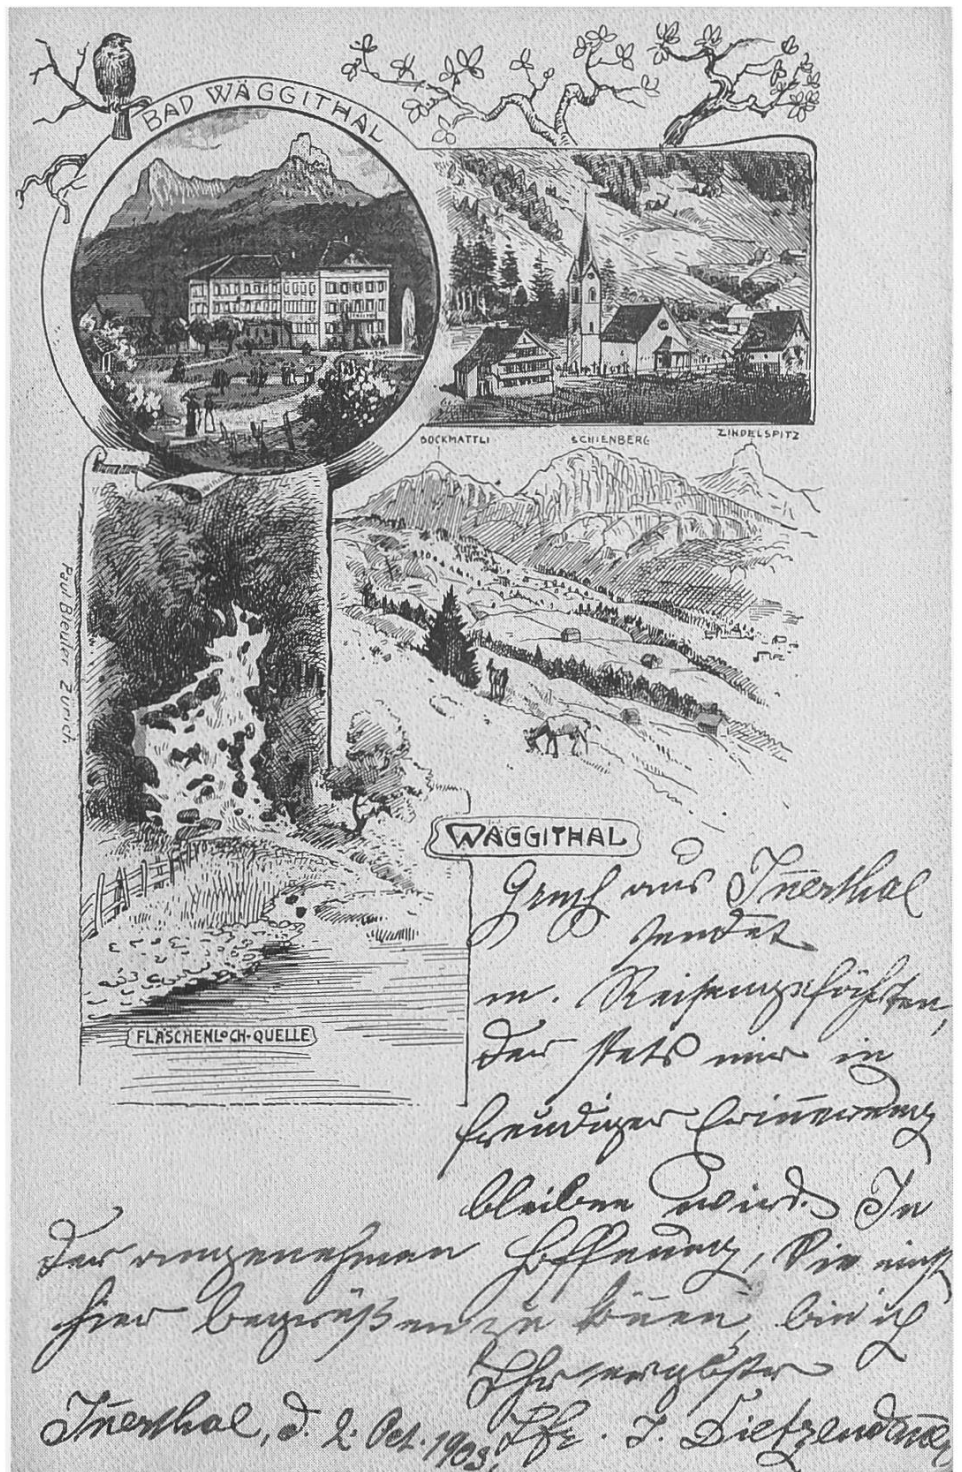 BAD WÄGGITHAL
BOCKMATTLI
SCHIENBERG
ZINDELSPITZ
Paul Bleuler Zürich
WÄGGITHAL
FLÄSCHENLOCH-QUELLE
Gruß aus Iñerthal
sendet
m. Reisengefährten,
der stets mir in
freudiger Eriñerung
bleiben wird. In
der angenehmen Hoffnung, Sie einst
hier begrüßen zu köñen, bin ich
Ihr ergebster
Iñerthal, d. 2. Oct. 1903. Pfr. J.